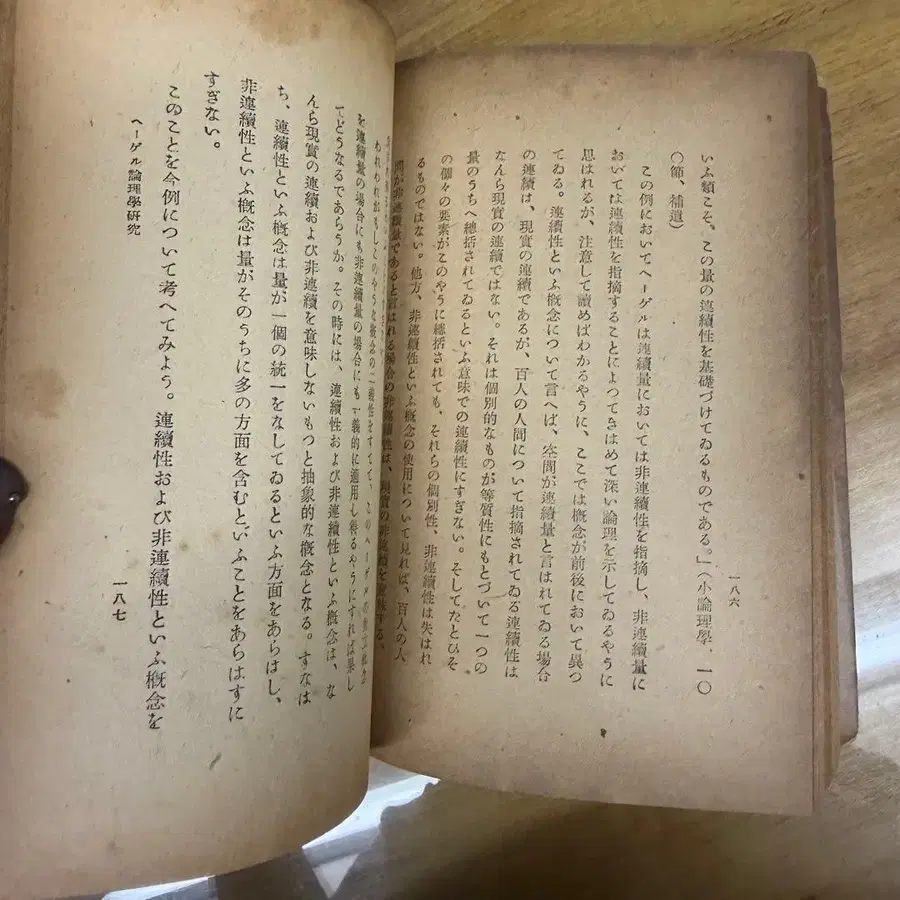 一八六
いふ類こそ、この量の連續性を基礎づけてゐるものである。」(小論理學、一〇
〇節、補遺)
この例においてヘーゲルは連續量においては非連續性を指摘し、非連續量に
おいては連續性を指摘することによつてきはめて深い論理を示してゐるやうに
思はれるが、注意して讀めばわかるやうに、ここでは概念が前後において異つ
てゐる。連續性といふ概念について言へば、空間が連續量と言はれてゐる場合
の連續は、現實の連續であるが、百人の人間について指摘されてゐる連續性は
なんら現實の連續ではない。それは個別的なものが等質性にもとづいて一つの
量のうちへ總括されてゐるといふ意味での連續性にすぎない。そしてたとひそ
の個々の要素がこのやうに總括されても、それらの個別性、非連續性は失はれ
るものではない。他方、非連續性といふ概念の使用について見れば、百人の人
間が非連續量であると言はれる場合の非連續性は、現實の非連續を意味する。
われわれがもしこのやうな概念の二義性をすてて、このヘーゲルの
を連續量の場合にも非連續量の場合にも一義的に適用し得るやうにすれば果し
てどうなるであらうか。その時には、連續性および非連續性といふ概念は、な
んら現實の連續および非連續を意味しないもつと抽象的な概念となる。すなは
ち、連續性といふ概念は量が一個の統一をなしてゐるといふ方面をあらはし、
非連續性といふ概念は量がそのうちに多の方面を含むといふことをあらはすに
すぎない。
このことを今例について考へてみよう。連續性および非連續性といふ概念を
ヘーゲル論理學研究
一八七